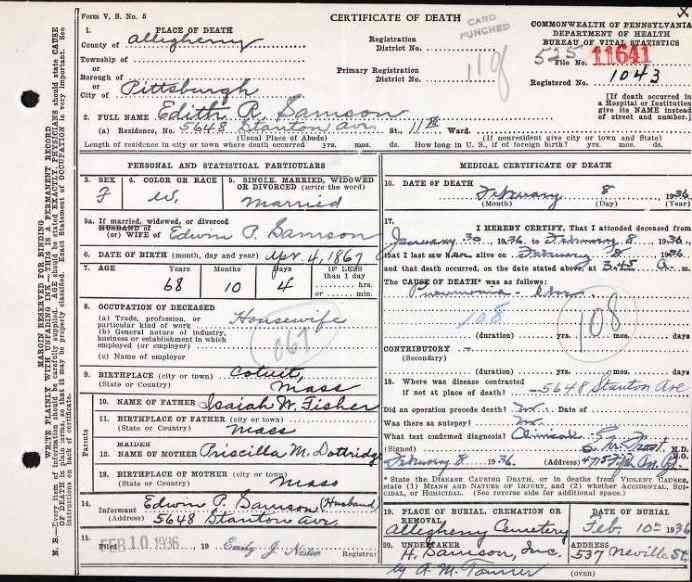 Form V. S. No. 5
CERTIFICATE OF DEATH
CARD PUNCHED
X
COMMONWEALTH OF PENNSYLVANIA
DEPARTMENT OF HEALTH
BUREAU OF VITAL STATISTICS
1. PLACE OF DEATH
County of Allegheny
Township of
or
Borough of
or
City of Pittsburgh
Registration District No.
Primary Registration District No.
File No. 11641
Registered No. 1043
[If death occurred in a Hospital or Institution give its NAME instead of street and number.]
2. FULL NAME Edith R. Samson
(a) Residence, No. 5648 Stanton Ave. St., 11th Ward.
(Usual Place of Abode) (If nonresident give city or town and State)
Length of residence in city or town where death occurred yrs. mos. ds. How long in U. S., if of foreign birth? yrs. mos. ds.
PERSONAL AND STATISTICAL PARTICULARS
3. SEX
F
4. COLOR OR RACE
W.
5. SINGLE, MARRIED, WIDOWED OR DIVORCED (write the word)
Married
5a. If married, widowed, or divorced
HUSBAND of
(or) WIFE of Edwin P. Samson
6. DATE OF BIRTH (month, day and year) Apr. 4, 1867
7. AGE Years Months Days If LESS than 1 day
68 10 4 hrs. or min.
8. OCCUPATION OF DECEASED
(a) Trade, profession, or particular kind of work Housewife
(b) General nature of industry, business or establishment in which employed (or employer)
(c) Name of employer
067
9. BIRTHPLACE (city or town) Cotuit,
(State or Country) Mass
Parents
10. NAME OF FATHER Isaiah W. Fisher
11. BIRTHPLACE OF FATHER (city or town)
(State or Country) Mass
12. MAIDEN NAME OF MOTHER Priscilla M. Dottridge
13. BIRTHPLACE OF MOTHER (city or town)
(State or Country) Mass
14. Informant Edwin P. Samson (Husband)
(Address) 5648 Stanton Ave.
15. Filed FEB 10 1936 19
MEDICAL CERTIFICATE OF DEATH
16. DATE OF DEATH February 8 1936
(Month) (Day) (Year)
17. I HEREBY CERTIFY, That I attended deceased from
January 30 1936 to February 8 1936
that I last saw her alive on February 8 1936
and that death occurred, on the date stated above, at 3.45 A. m.
The CAUSE OF DEATH* was as follows:
Pneumonia
108
108
(duration) yrs. mos. ds.
CONTRIBUTORY
(Secondary)
(duration) yrs. mos. ds.
18. Where was disease contracted
if not at place of death? 5648 Stanton Ave
Did an operation precede death? Date of
Was there an autopsy?
What test confirmed diagnosis? Clinical
(Signed) M.D.
February 8 1936 (Address)
* State the DISEASE CAUSING DEATH, or in deaths from VIOLENT CAUSES, state (1) MEANS AND NATURE OF INJURY, and (2) whether ACCIDENTAL, SUICIDAL, or HOMICIDAL. (See reverse side for additional space.)
19. PLACE OF BURIAL, CREMATION OR REMOVAL
Allegheny Cemetery
DATE OF BURIAL
Feb. 10th 1936
20. UNDERTAKER
H. Samson, Inc.
ADDRESS
537 Neville St.
(OVER)
MARGIN RESERVED FOR BINDING
WRITE PLAINLY WITH UNFADING INK—THIS IS A PERMANENT RECORD
N. B.—Every item of information should be carefully supplied. AGE should be stated EXACTLY. PHYSICIANS should state CAUSE OF DEATH in plain terms, so that it may be properly classified. Exact Statement of OCCUPATION is very important. See instructions on back of certificate.